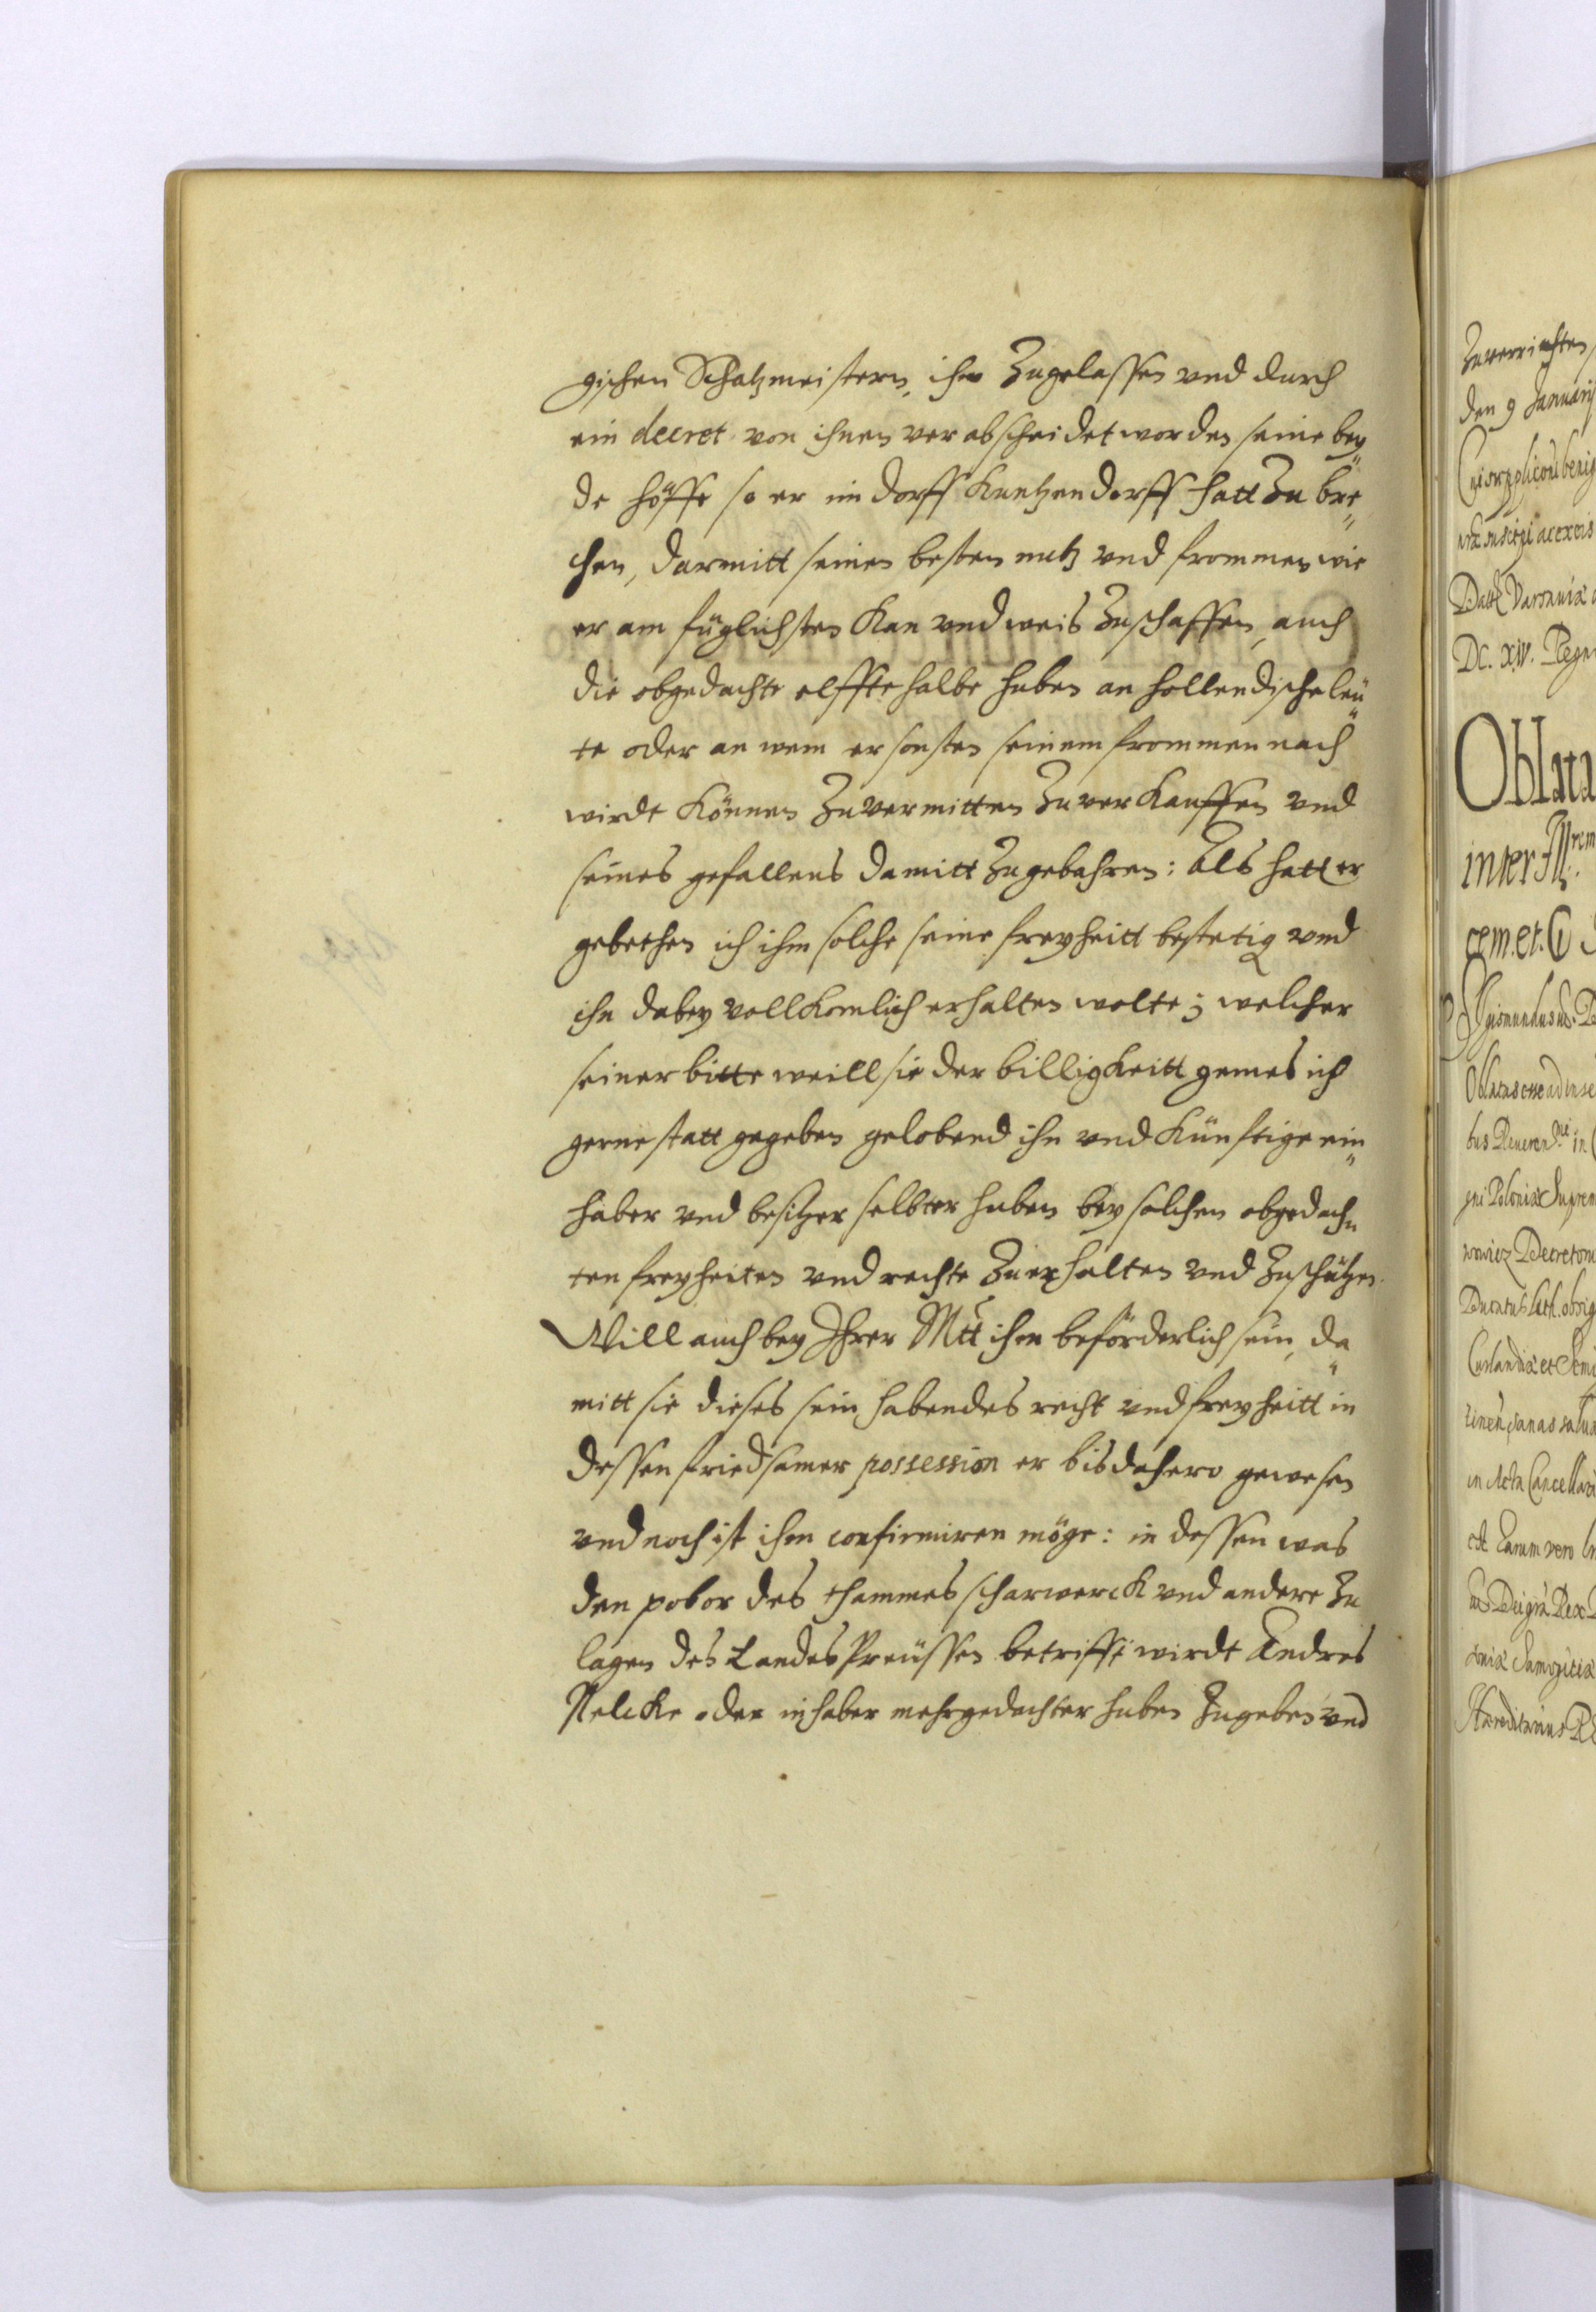 gischen Schatzmeistern, ihm Zugelassen vnd durch
ein decret von ihnen verabscheidet worden seine bey„
de höffe so er im dorff Kuntzendorff hatt Zu bre„
chen, darmitt seinen besten nutz vnd frommen wie
er am füglichsten Kan vnd weis Zuschaffen, auch
die obgedachte elffte halbe huben an hollendische leü„
te oder an wem er sonsten seinem frommen nach
wirdt Können Zuvermitten Zuverkauffen vnd
seines gefallens damitt Zugebahren: Als hatt er
gebethen ich ihm solche seine freyheitt bestetig vnd
ihn dabey vollKomlich erhalten wolte; welcher
seiner bitte weill sie der billigkeitt gemes ich
gerne statt gegeben gelobend ihn vnd Künftige ein„
haber vnd besitzer selbter huben bey solchen obgedach„
ten freyheiten vnd rechte Zuerhalten vnd Zuschützen.
Will auch bey Ihrer Mtt ihm beförderlich sein, da„
mitt sie dieses sein habendes recht vnd freyheitt in
dessen friedsamer possession er bisdahero gewesen
vnd noch ist ihm confirmiren möge: in dessen was
den pobor des thammes scharwerck vnd andere Zu
lagen des Landes Preüssen betrifft wirdt Andres
Nelcke oder inhaber mehrgedachter huben Zugeben vnd
Zuverrichten,
den 9 Januarij
Datt Varsauiæ
DC. XIV. Regn
Oblata
inter Ill
cem. et.
Oblatas esse ad inse
gni Poloniæ Suprem
Curlandiæ et Semi
in Acta Cancellari